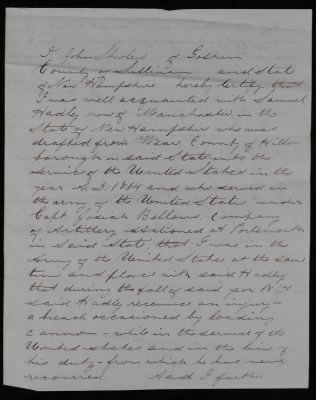 I John Sholes of Goshen
County of Sullivan and State
of New Hampshire hereby certify that
I was well acquainted with Samuel
Hadley now of Manchester in the
State of New Hampshire who was
drafted from Wear County of Hills-
borough in said State into the
service of the United States in the
year A.D. 1814 and who served in
the army of the United State under
Capt Josiah Bellows, Company
of Artillery stationed at Portsmouth
in Said State, that I was in the
Army of the United States at the same
time and place with said Hadly
that during the fall of said year 1814
said Hadly received an injury -
a breach occasioned by loading
cannon - while in the service of the
United States and in the line of
his duty - from which he has never
recovered. And I further